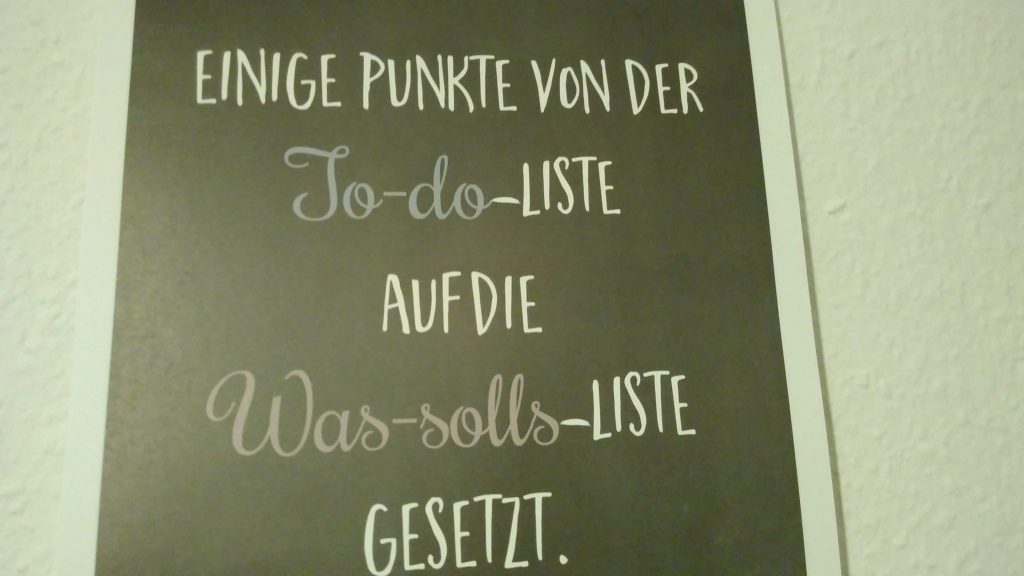 EINIGE PUNKTE VON DER
To-do-LISTE
AUF DIE
Was-solls-LISTE
GESETZT.